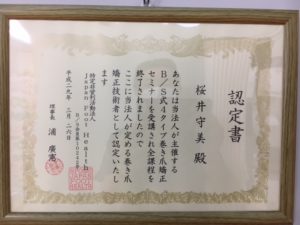 認定書
桜井守美 殿
あなたは当法人が主催する
B/S式4タイプ巻き爪矯正
セミナーを受講され全課程を
終了されましたので
ここに当法人が定める巻き爪
矯正技術者として認定いたし
ます
平成二九年 三月 二六日
特定非営利活動法人
Japan Foot Health
理事長 浦 廣憲